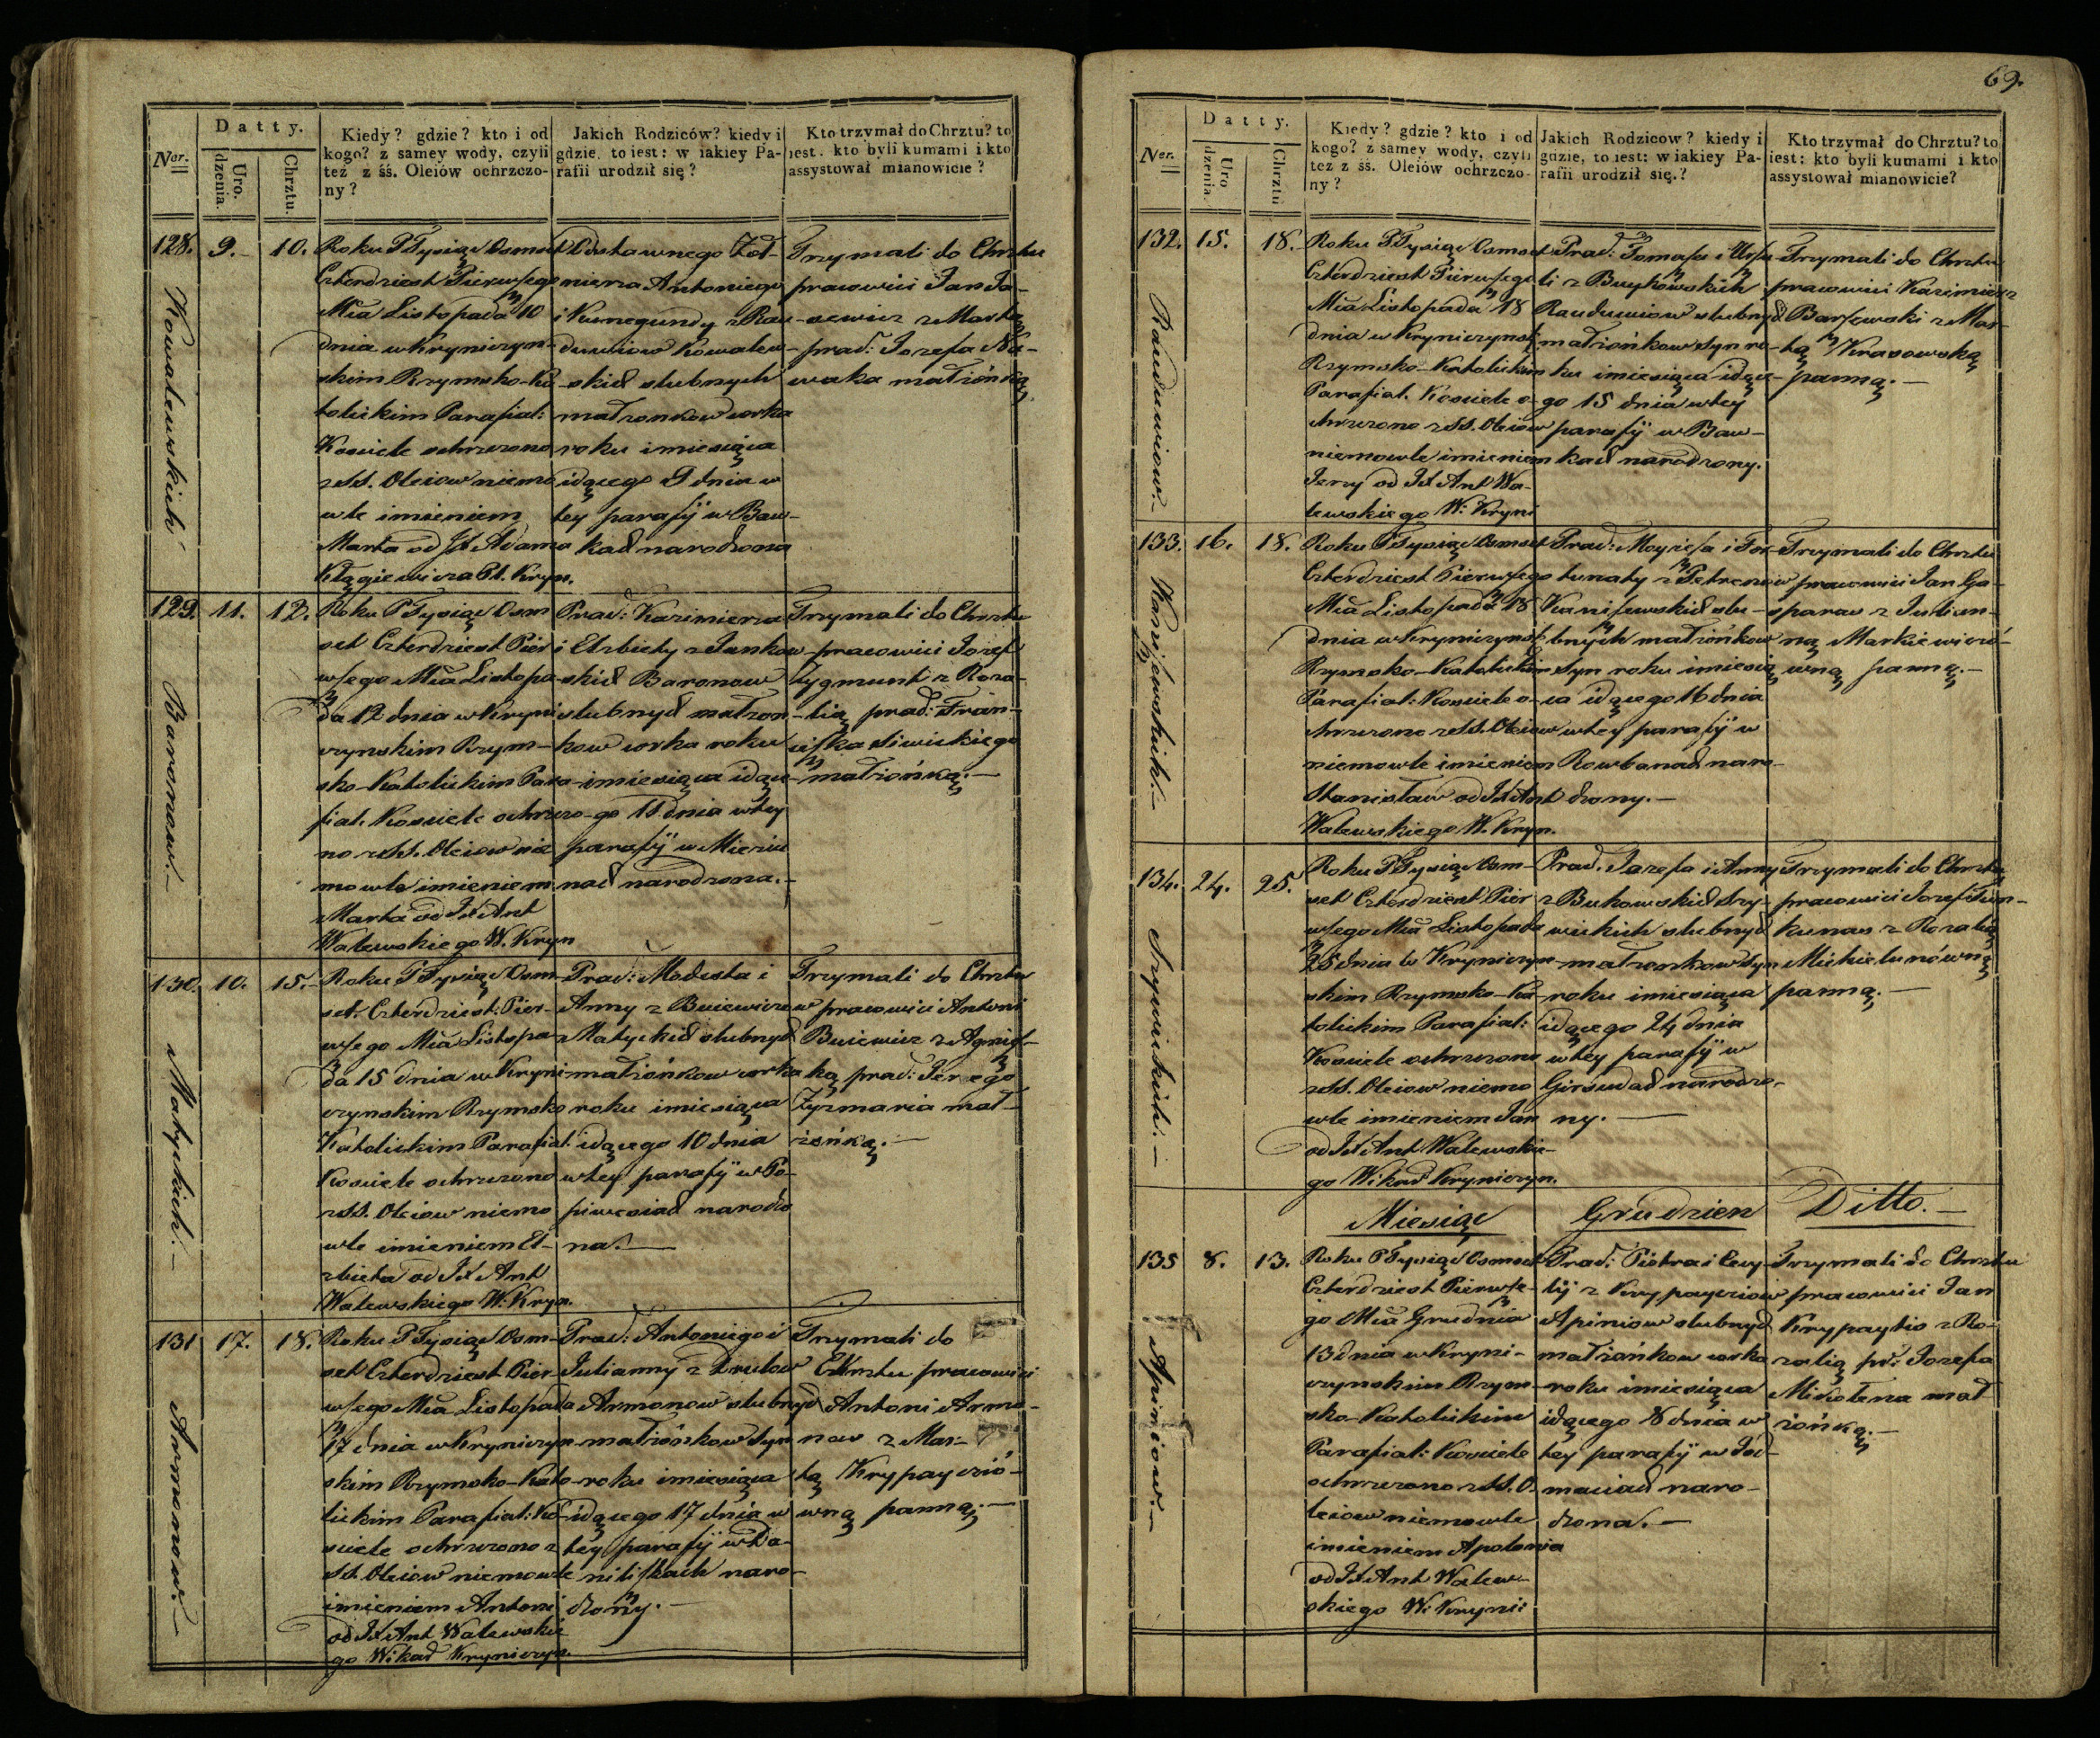 69.
Datty.
Ner.
Uro.
dzenia.
Chrztu.
Kiedy? gdzie? kto i od
kogo? z samey wody, czyli
też z śś. Oleiów ochrzczo-
ny?
Jakich Rodziców? kiedy i
gdzie, to iest: w iakiey Pa-
rafii urodził się?
Kto trzymał do Chrztu? to
iest. kto byli kumami i kto
assystował mianowicie?
128. 9. 10.
Kowalewskich
Roku Tysiąc Osmset
Czterdziest Pierwszego
Mca Listopada 10
dnia w Kryniczyn-
skim Rzymsko-Ka-
tolickim Parafial:
Kosciele ochrzczono
z SS. Oleiow niemo
wle imieniem
Marta od JX Adama
Kryn.
Odstawnego Żoł-
nierza Antoniego
i Kunegundy z Rau-
duwiow Kowalew-
skich slubnych
małżonkow corka
roku i miesiąca
idącego 9 dnia w
tey parafij w Baw-
kach narodzona
Trzymali do Chrztu
pracowici Jan Ja-
cewicz z Martą
prac: Jozefa No-
waka małżonką
129. 11. 12.
Baronow.—
Roku Tysiąc Osm
set Czterdziest Pier
wszego Mca Listopa-
da 12 dnia w Kryni
czynskim Rzym-
sko-Katolickim Para-
fial. Kosciele ochrzczo-
no z SS. Oleiow nie
mowle imieniem
Marta od JX Ant
Walewskiego W. Kryn
Prac: Kazimierza
i Elzbiety z Jankow-
skich Baronow
slubnych małżon-
kow corka roku
i miesiąca idące-
go 11 dnia w tey
parafij w
nach narodzona.—
Trzymali do Chrztu
pracowici Jozef
Zygmunt z Roza-
lią prac: Fran-
ciszka Sliwickiego
małżonką.—
130. 10. 15.
Matyckich.—
Roku Tysiąc Osm-
set Czterdziest: Pier-
wszego Mca Listopa-
da 15 dnia w Kryni
czynskim Rzymsko
Katolickim Parafial.
Kosciele ochrzczono
z SS. Oleiow niemo
wle imieniem El-
zbieta od JX Ant
Walewskiego W. Kryn.
Prac: Modesta i
Anny z Buiewiczow
Matyckich slubnych
małżonkow corka
roku i miesiąca
idącego 10 dnia
w tey parafij w Po-
piwesiach narodzo
na.—
Trzymali do Chrztu
pracowici Antoni
Buiewicz z Agniesz-
ką prac: Jerzego
Zyzmaria mał-
żonką.—
131 17. 18.
Armonow.—
Roku Tysiąc Osm-
set Czterdziest Pier-
wszego Mca Listopada
17 dnia w Kryniczyn-
skim Rzymsko-Kato-
lickim Parafial: Ko-
sciele ochrzczono z
SS. Oleiow niemowle
imieniem Antoni
od JX Ant Walewskie
go Wikar Kryniczyn.
Prac: Antoniego i
Julianny z Drulow
Armonow slubnych
małżonkow syn
roku i miesiąca
idącego 17 dnia w
tey parafij w Da-
niliszkach naro-
dzony.—
Trzymali do
Chrztu pracowici
Antoni Armo-
nas z Mar-
tą Krypayció-
wną panną.—
Datty.
Ner.
Uro
dzenia.
Chrztu
Kiedy? gdzie? kto i od
kogo? z samey wody, czyli
też z śś. Oleiów ochrzczo-
ny?
Jakich Rodziców? kiedy i
gdzie, to iest: w iakiey Pa-
rafii urodził się.?
Kto trzymał do Chrztu? to
iest: kto byli kumami i kto
assystował mianowicie?
132. 15. 18.
Rauduwiow.—
Roku Tysiąc Osmset
Czterdziest Pierwszego
Mca Listopada 18
dnia w Kryniczynsk
Rzymsko-Katolickim
Parafial. Kosciele o-
chrzczono z SS. Oleiow
niemowle imieniem
Jerzy od JX Ant Wa-
lewskiego W: Kryni
Prac: Tomasza i Urszu-
li z Buykowskich
Rauduwiow slubnych
małżonkow syn ro-
ku i miesiąca idące-
go 15 dnia w tey
parafij w Baw-
kach narodzony.
Trzymali do Chrztu
pracowici Kazimierz
Barszewski z Mar-
tą Krasowską
panną.—
133. 16. 18.
Kaniszewskich.—
Roku Tysiąc Osmset
Czterdziest Pierwszego
Mca Listopada 18
dnia w Kryniczynsk
Rzymsko-Katolickim
Parafial: Kosciele o-
chrzczono z SS. Oleiow
niemowle imieniem
Stanisław od JX Ant
Walewskiego W. Kryn.
Prac: Moyżesza i For-
tunaty z Petrenow
Kaniszewskich slu-
bnych małżonkow
syn roku i miesią
ca idącego 16 dnia
w tey parafij w
Rowbanach naro-
dzony.—
Trzymali do Chrztu
pracowici Jan Ga-
sparas z Julian-
ną Markiewiczó-
wną panną.—
134. 24. 25.
Srzywickich.—
Roku Tysiąc Osm-
set Czterdziest Pier
wszego Mca Listopada
25 dnia w Kryniczyn-
skim Rzymsko-Ka-
tolickim Parafial:
Kosciele ochrzczono
z SS. Oleiow niemo
wle imieniem Jan
od JX Ant Walewskie-
go Wikar Kryniczyn.
Prac. Jozefa i Anny
z Bukowskich Srzy-
wickich slubnych
małżonkow syn
roku i miesiąca
idącego 24 dnia
w tey parafij w
narodzo-
ny.—
Trzymali do Chrztu
pracowici Jozef
kunas z Rozalią
Mickielunówną
panną.—
Miesiąc Grudzien Ditto.—
135 8. 13.
Apiniow.—
Roku Tysiąc Osmset
Czterdziest Pierwsze-
go Mca Grudnia
13 dnia w Kryni-
czynskim Rzym-
sko-Katolickim
Parafial: Kosciele
ochrzczono z SS. O-
leiow niemowle
imieniem Apolonia
od JX Ant Walew-
skiego W: Kryni:
Prac: Piotra i Cecy-
lij z Krypayciow
Apiniow slubnych
małżonkow corka
roku i miesiąca
idącego 8 dnia w
tey parafij w Jod-
maciach naro-
dzona.—
Trzymali do Chrztu
pracowici Jan
Krypaytis z Ro-
zalią pr: Jozefa
Mikołena mał
żonką.—